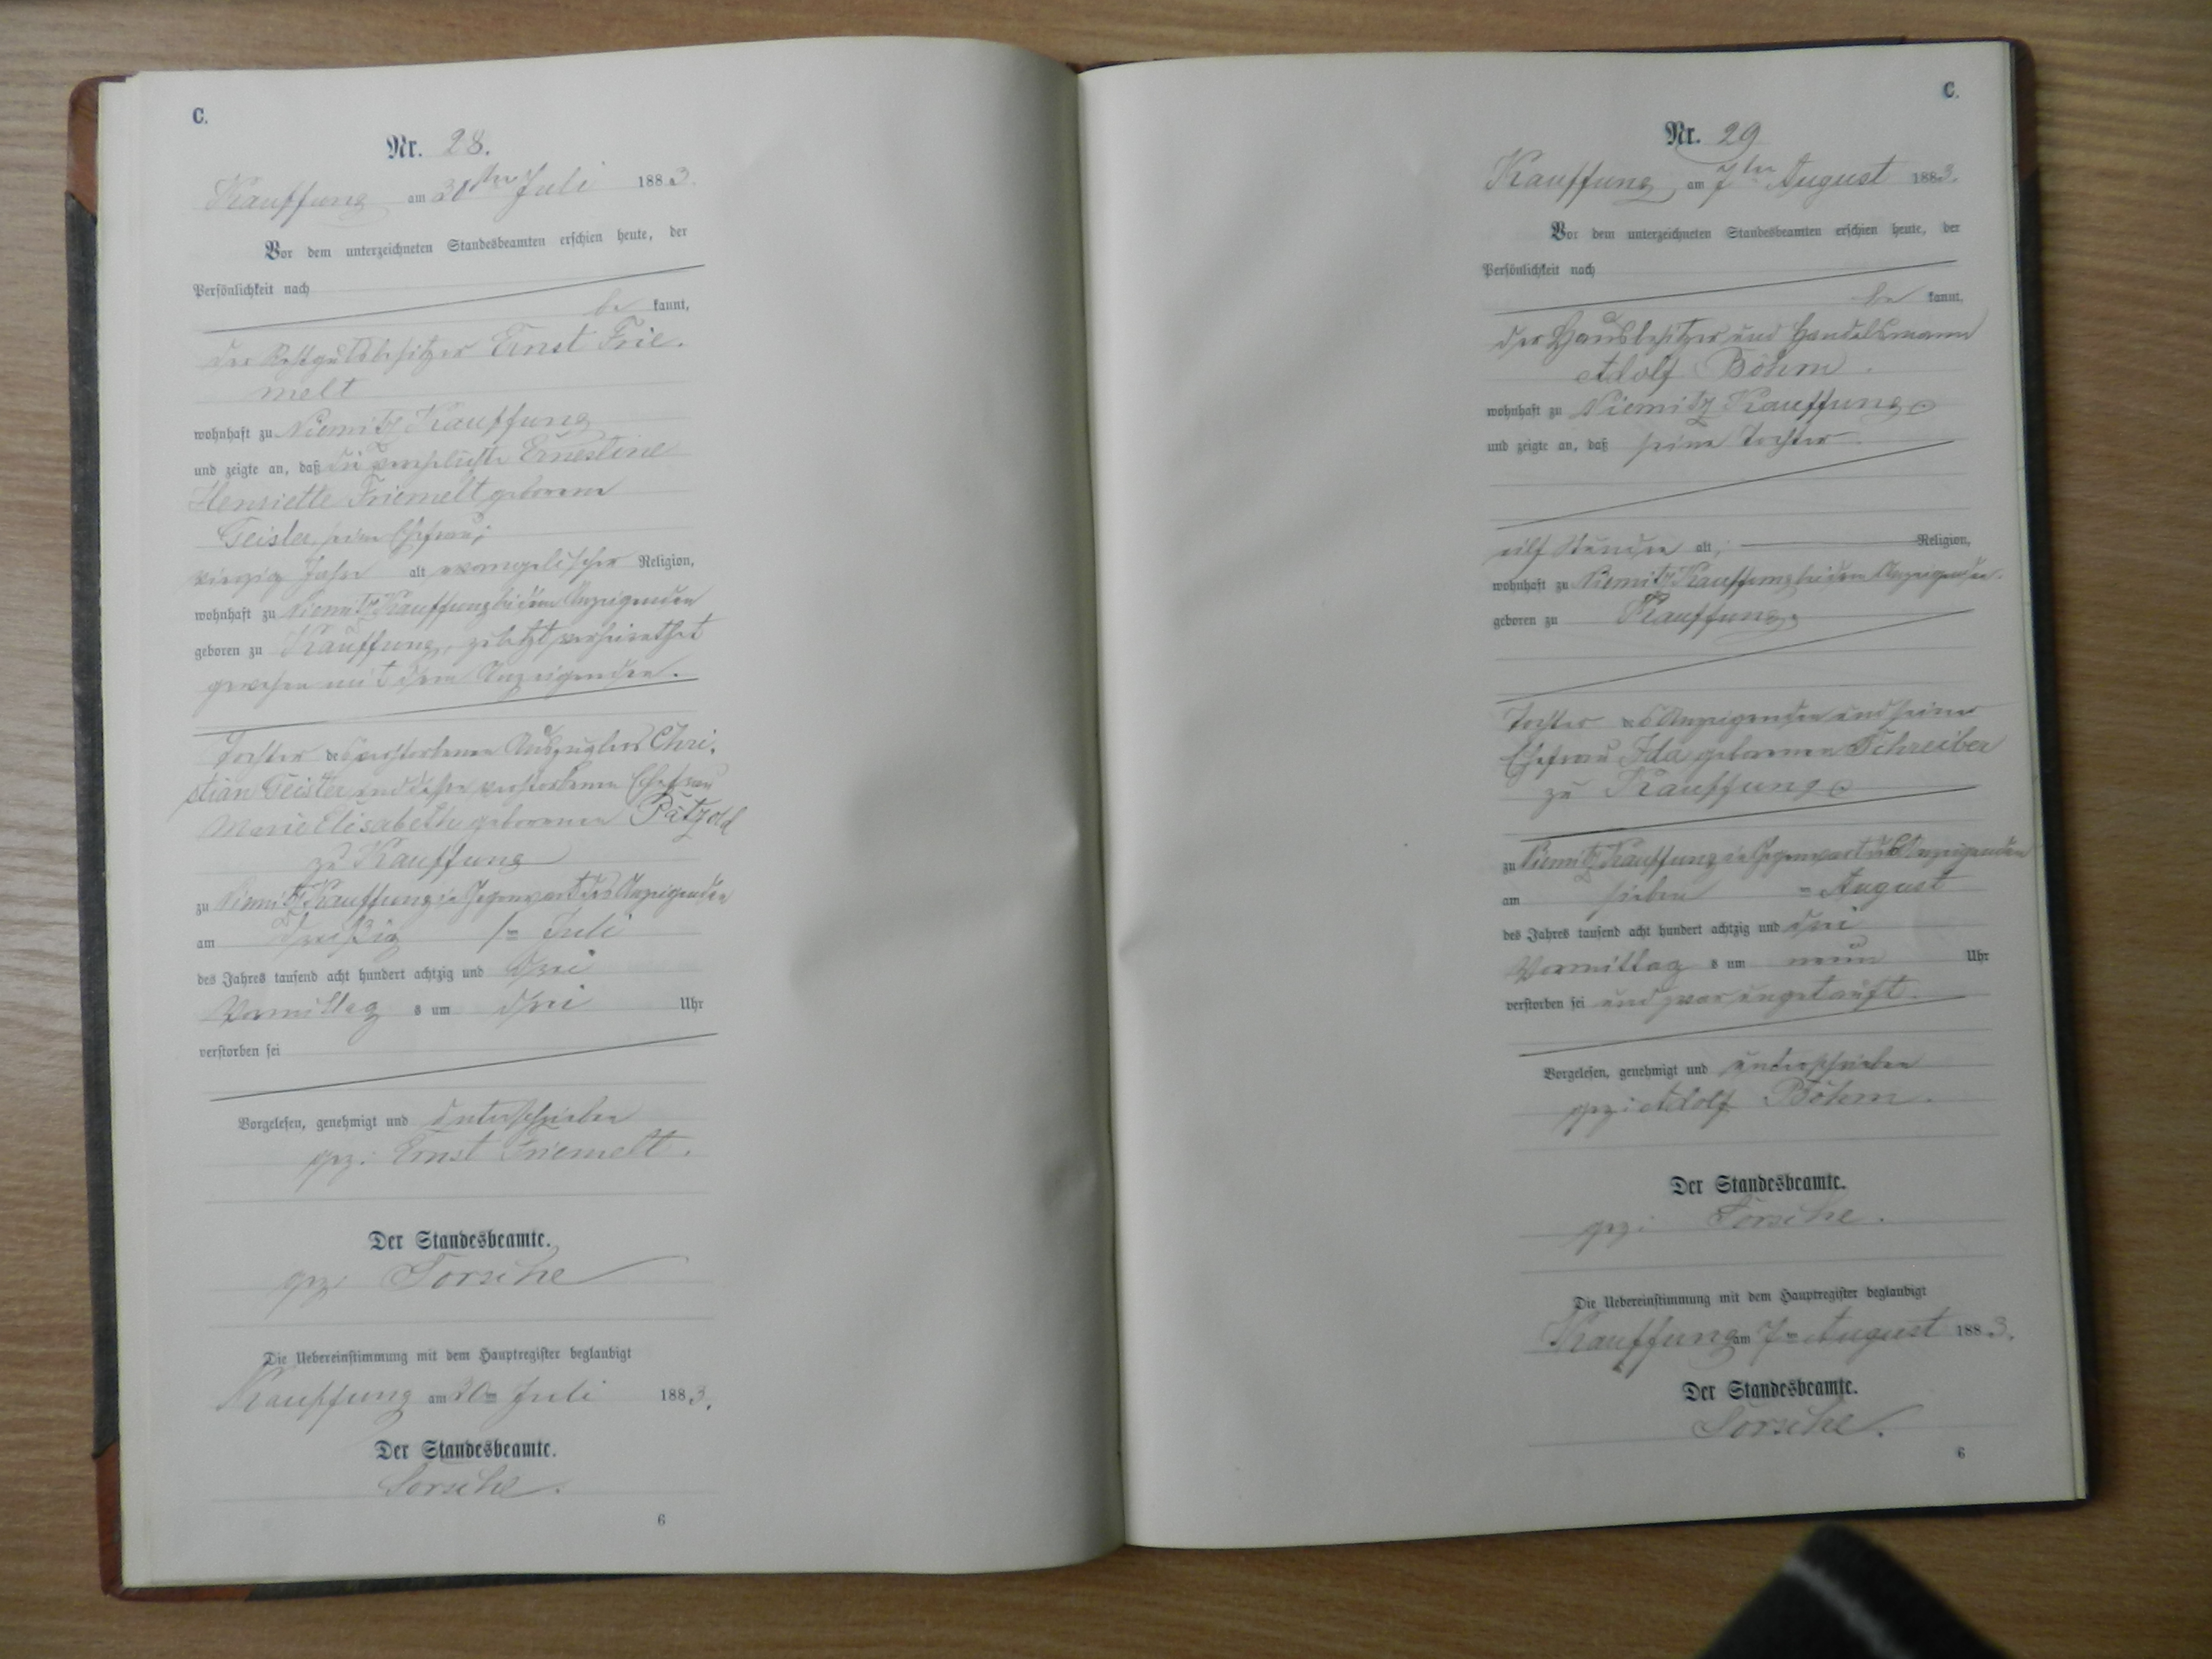 C.
Nr. 28.
Kauffung am 30ten Juli 1883.
Vor dem unterzeichneten Standesbeamten erschien heute, der
Persönlichkeit nach
be kannt,
der Restgutsbesitzer Ernst Frie-
melt
wohnhaft zu Niemitz Kauffung
und zeigte an, daß die verehelichte Ernestine
Henriette Friemelt geborene
Geisler, seine Ehefrau,
vierzig Jahr alt evangelischer Religion,
wohnhaft zu Niemitz Kauffung bei dem Anzeigenden
geboren zu Kauffung, zuletzt verheirathet
gewesen mit dem Anzeigenden.
Tochter des verstorbenen Auszüglers Chri-
stian Geisler und dessen verstorbenen Ehefrau
Marie Elisabeth geborenen Pätzold
zu Kauffung
zu Niemitz Kauffung in Gegenwart des Anzeigenden
am dreißig sten Juli
des Jahres tausend acht hundert achtzig und drei
Vormittag s um drei Uhr
verstorben sei
Vorgelesen, genehmigt und unterschrieben
gez: Ernst Friemelt.
Der Standesbeamte.
gez:
Die Uebereinstimmung mit dem Hauptregister beglaubigt
Kauffung am 30ten Juli 1883.
Der Standesbeamte.
6
C.
Nr. 29
Kauffung, am 7ten August 1883.
Vor dem unterzeichneten Standesbeamten erschien heute, der
Persönlichkeit nach
be kannt,
der Hausbesitzer und Handelsmann
Adolf Böhm.
wohnhaft zu Niemitz Kauffung
und zeigte an, daß seine Tochter
eilf Stunden alt, Religion,
wohnhaft zu Niemitz Kauffung bei dem Anzeigenden.
geboren zu Kauffung,
Tochter des Anzeigenden und seiner
Ehefrau Ida geborenen Schreiber
zu Kauffung
zu Niemitz Kauffung in Gegenwart des Anzeigenden
am sieben ten August
des Jahres tausend acht hundert achtzig und drei
Vormittag s um neun Uhr
verstorben sei und zwar ungetauft.
Vorgelesen, genehmigt und unterschrieben
gez: Adolf Böhm.
Der Standesbeamte.
gez:
Die Uebereinstimmung mit dem Hauptregister beglaubigt
Kauffung am 7ten August 1883.
Der Standesbeamte.
6